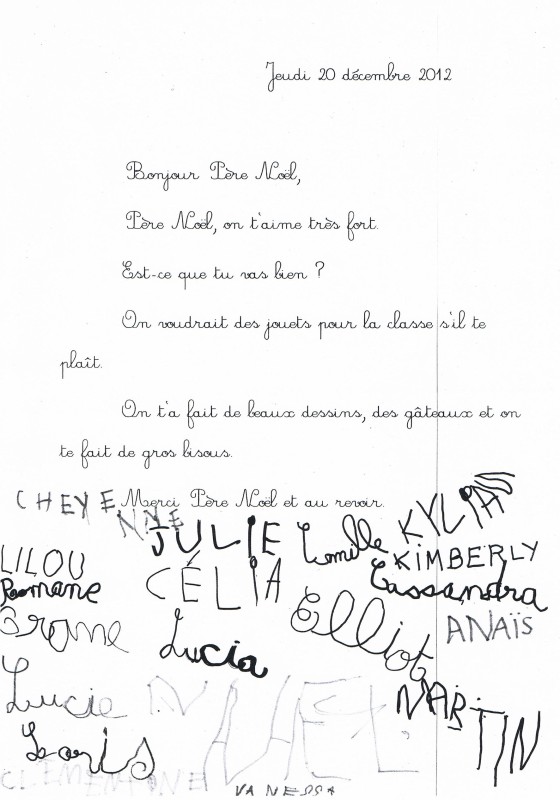 Jeudi 20 décembre 2012
Bonjour Père Noël,
Père Noël, on t'aime très fort.
Est-ce que tu vas bien ?
On voudrait des jouets pour la classe s'il te
plaît.
On t'a fait de beaux dessins, des gâteaux et on
te fait de gros bisous.
Merci Père Noël et au revoir.
CHEYENNE
JULIE
Camille
KYLIAN
LILOU
KIMBERLY
Romane
CÉLIA
Cassandra
Elliot
ANAÏS
Lucia
Lucie
MARTIN
Loris
CLEMENTINE
VANESSA